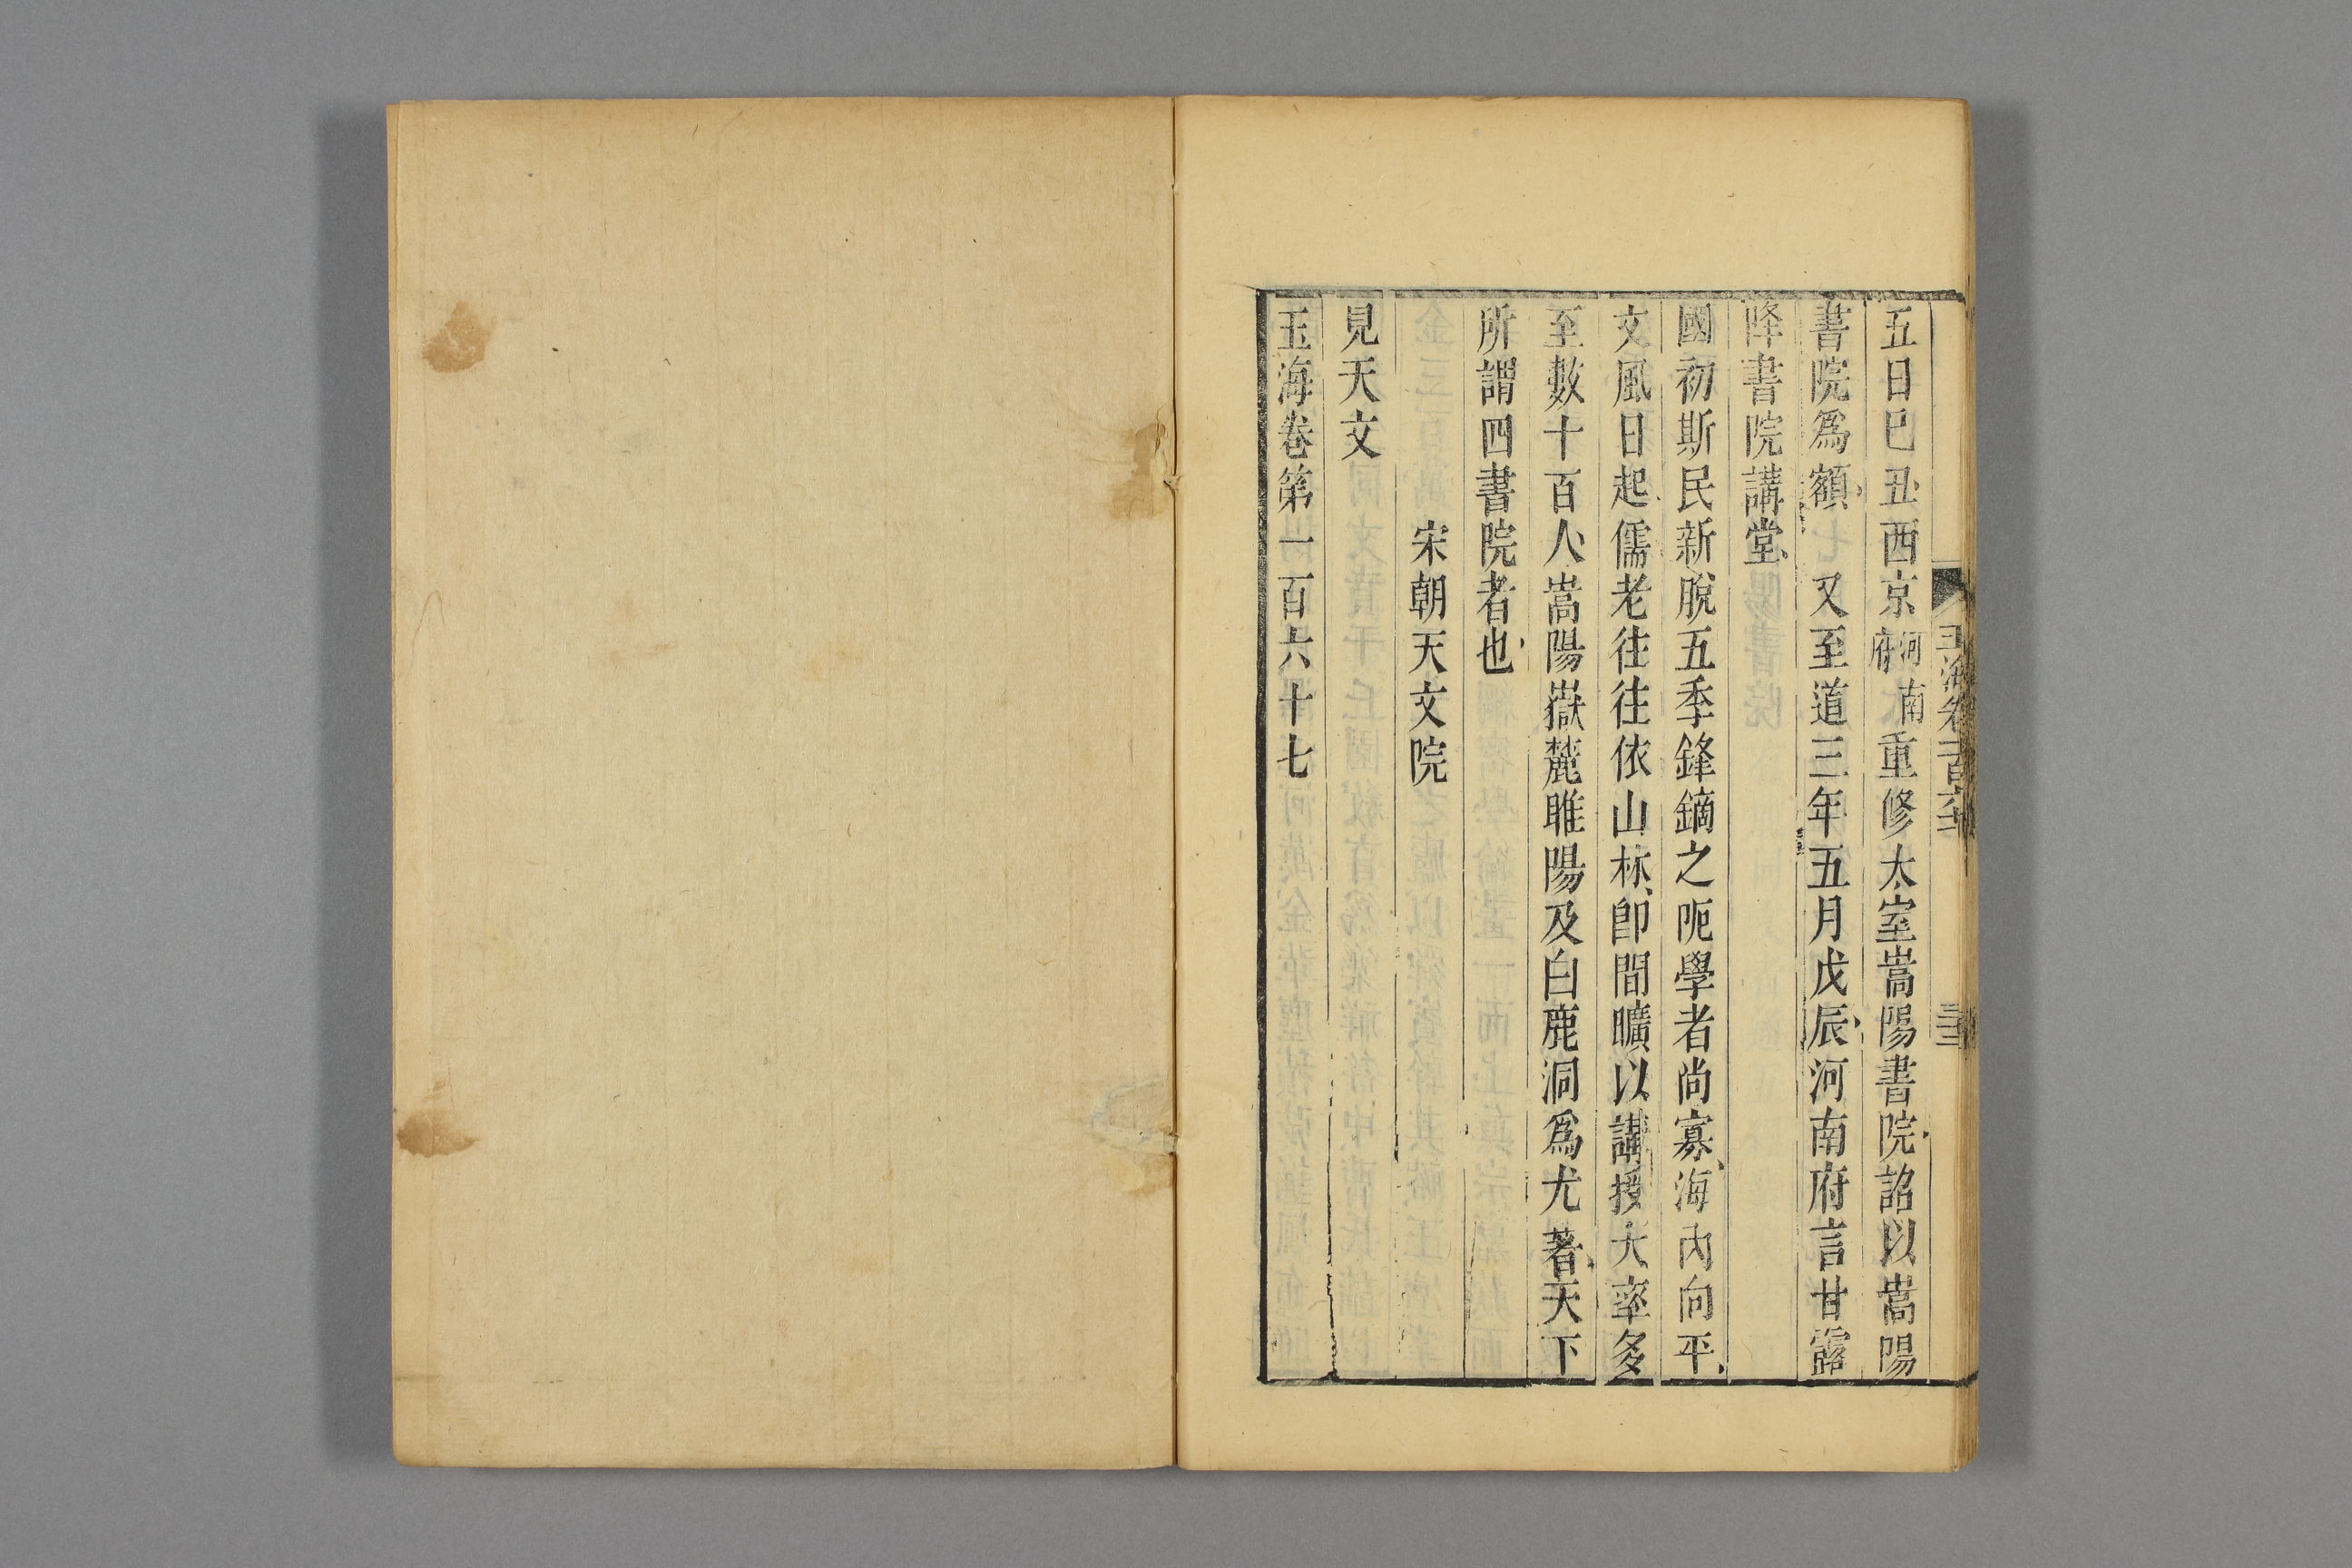 五日巳丑西京河南府重修太室嵩陽書院詔以嵩陽
書院爲額 又至道三年五月戊辰河南府言甘露
降書院講堂
國初斯民新脫五季鋒鏑之阨學者尚寡海內向平
文風日起儒老往往依山林卽閒曠以講授大率多
至數十百人嵩陽嶽麓睢陽及白鹿洞爲尤著天下
所謂四書院者也
宋朝天文院
見天文
玉海卷第一百六十七